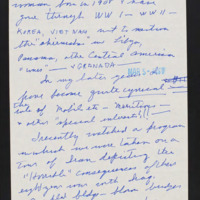 woman born in 1908 I have
gone through WW I - WW II -
KOREA, VIET NAM not to mention
the "skirmishes" in Libya,
Panama, the Central American
"wars" - GRENADA -
In my later years
have become quite cynical
the role of Mobil etc - Meritious
+ other "special interests"!!!
I recently watched a program
in which we were taken on a
tour of Iran depicting the
"Horrible" consequences of their
eight year war with Iraq